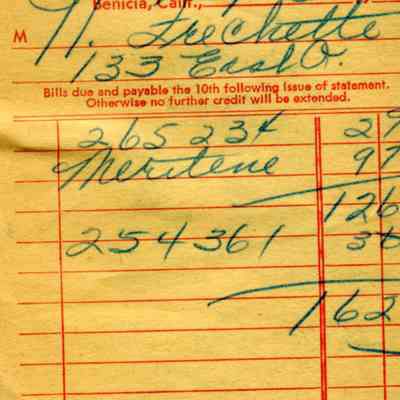 Benicia, Calif.,
M N. Frechette
133 East O.
Bills due and payable the 10th following issue of statement.
Otherwise no further credit will be extended.
265234 29
Meritene 97
126
254361 36
162